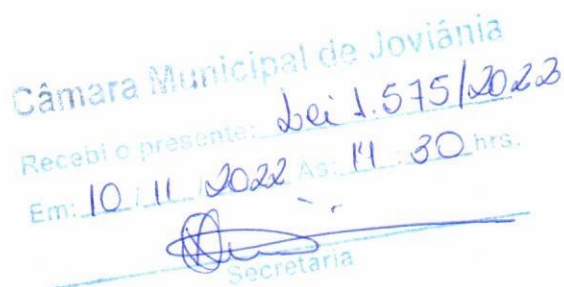 Câmara Municipal de Joviânia
Recebi o presente: Lei 1.575/2022
Em: 10 / 11 / 2022 Às: 14 : 30 hrs.
Secretaria